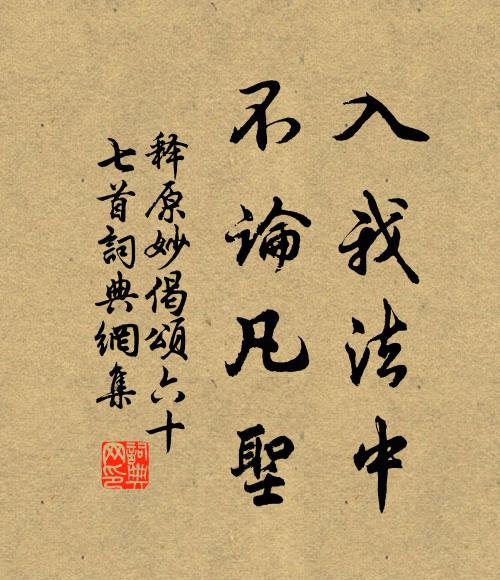 入我法中
不論凡聖
释原妙偈頌六十
七首詞典網集
詞典网印